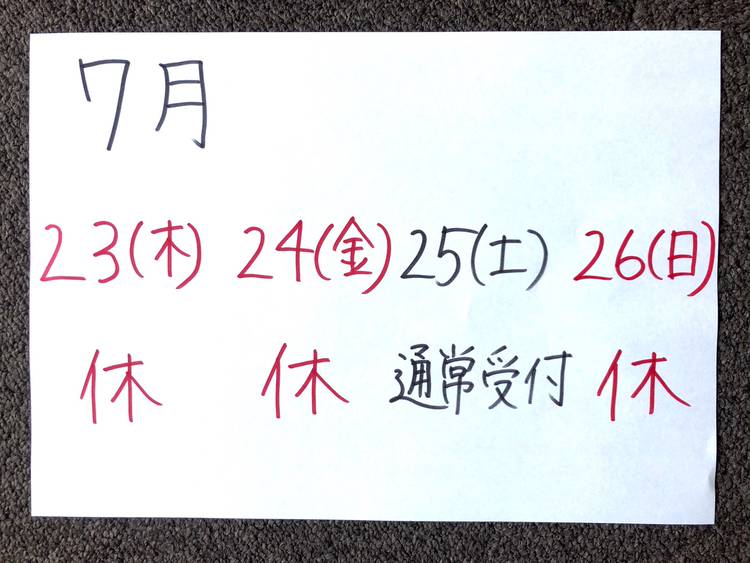 7月
23(木) 24(金) 25(土) 26(日)
休 休 通常受付 休